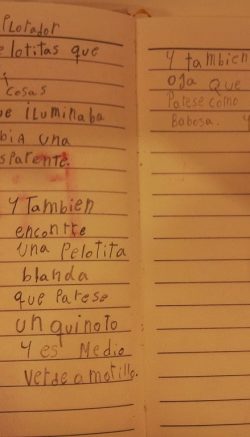 PLorador
elotitas que
cosas
ue iluminaba
bia una
sparente.
y Tambien
encontre
una Pelotita
blanda
que Parese
un quinoto
y es Medio
verde amarillo.
y tambien
oja que
Parese como
Babosa. y